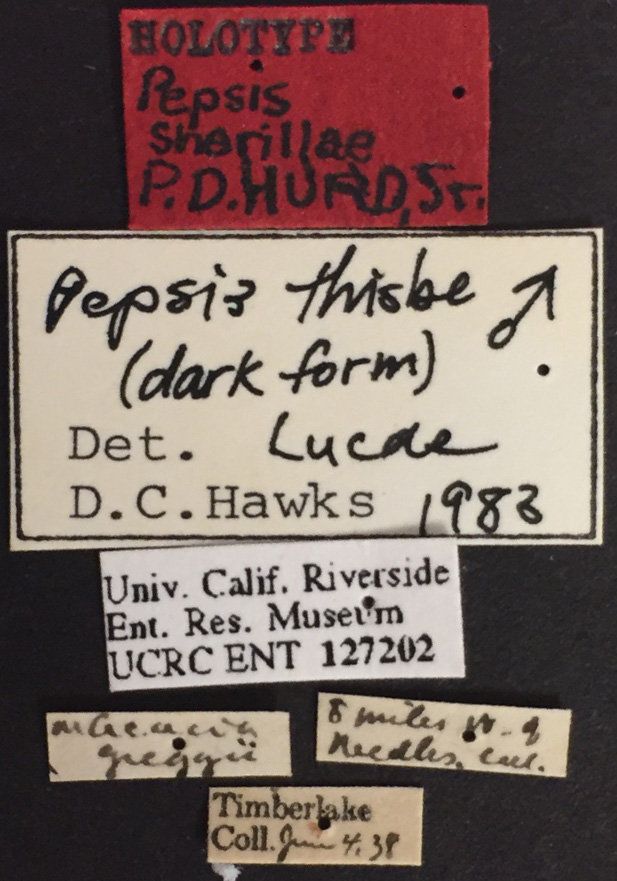 HOLOTYPE
Pepsis
sherillae
P.D.HURD, Jr.
Pepsis thisbe ♂
(dark form)
Det. Lucas
D.C.Hawks 1983
Univ. Calif. Riverside
Ent. Res. Museum
UCRC ENT 127202
on Acacia
greggii
8 miles W. of
Needles, Cal.
Timberlake
Coll. June 4.38